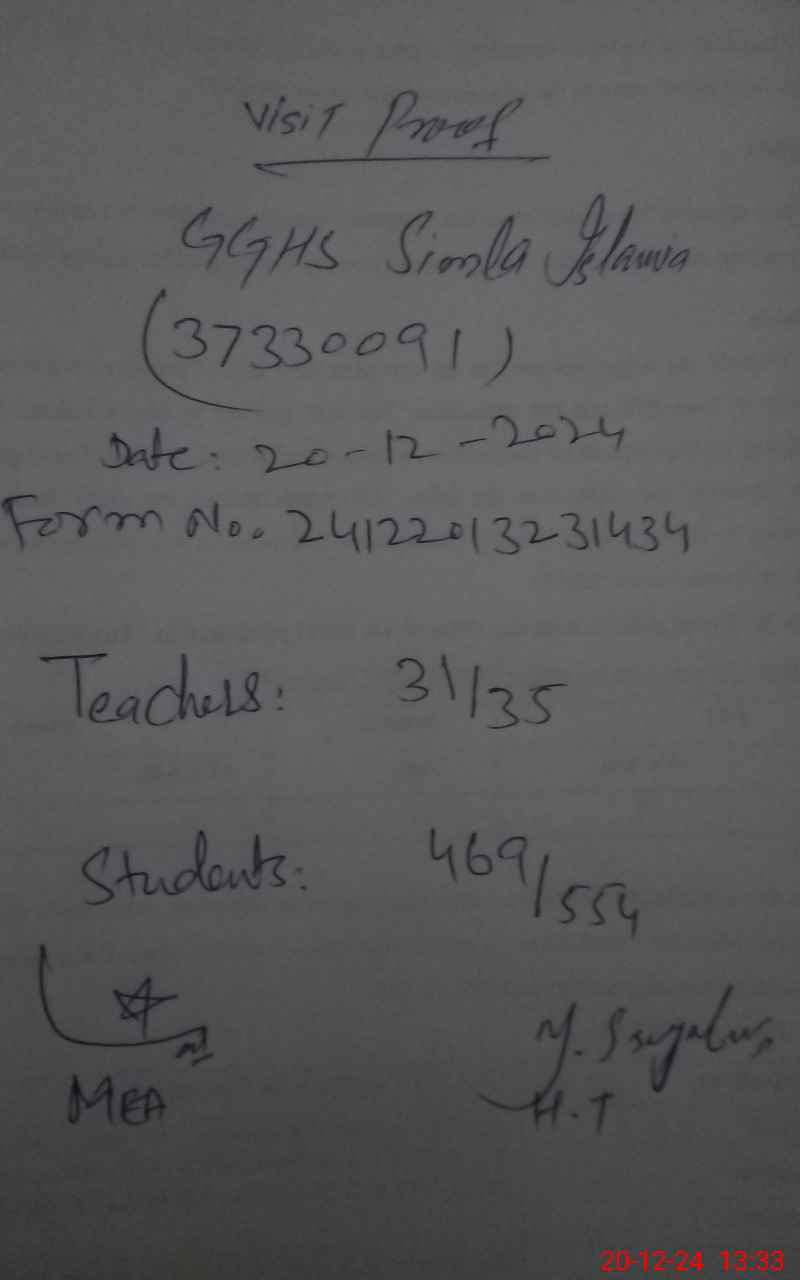 Visit Proof
GGHS Simla Islamia
(37330091)
Date: 20-12-2024
Form No. 24122013231434
Teachers: 31/35
Students: 469/554
MEA
H.T
20-12-24 13:33